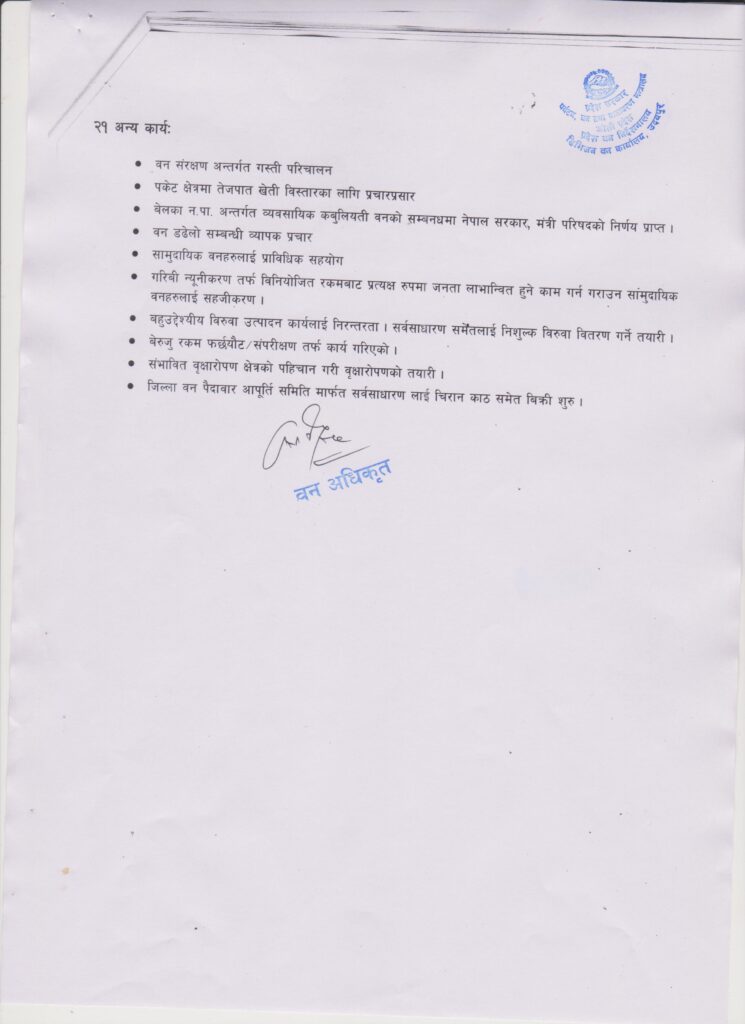 प्रदेश सरकार
पर्यटन, वन तथा वातावरण मन्त्रालय
कोशी प्रदेश
प्रदेश वन निर्देशनालय
डिभिजन वन कार्यालय, उदयपुर
२१ अन्य कार्य:
• वन संरक्षण अन्तर्गत गस्ती परिचालन
• पकेट क्षेत्रमा तेजपात खेती विस्तारका लागि प्रचारप्रसार
• बेलका न.पा. अन्तर्गत व्यवसायिक कबुलियती वनको सम्बनधमा नेपाल सरकार, मंत्री परिषदको निर्णय प्राप्त ।
• वन डढेलो सम्बन्धी व्यापक प्रचार
• सामुदायिक वनहरुलाई प्राविधिक सहयोग
• गरिबी न्यूनीकरण तर्फ विनियोजित रकमबाट प्रत्यक्ष रुपमा जनता लाभान्वित हुने काम गर्न गराउन सामुदायिक
वनहरुलाई सहजीकरण ।
• बहुउद्देश्यीय विरुवा उत्पादन कार्यलाई निरन्तरता । सर्वसाधारण समेतलाई निशुल्क विरुवा वितरण गर्ने तयारी ।
• बेरुजु रकम फर्छयौट/संपरीक्षण तर्फ कार्य गरिएको ।
• संभावित वृक्षारोपण क्षेत्रको पहिचान गरी वृक्षारोपणको तयारी ।
• जिल्ला वन पैदावार आपूर्ति समिति मार्फत सर्वसाधारण लाई चिरान काठ समेत बिक्री शुरु ।
वन अधिकृत